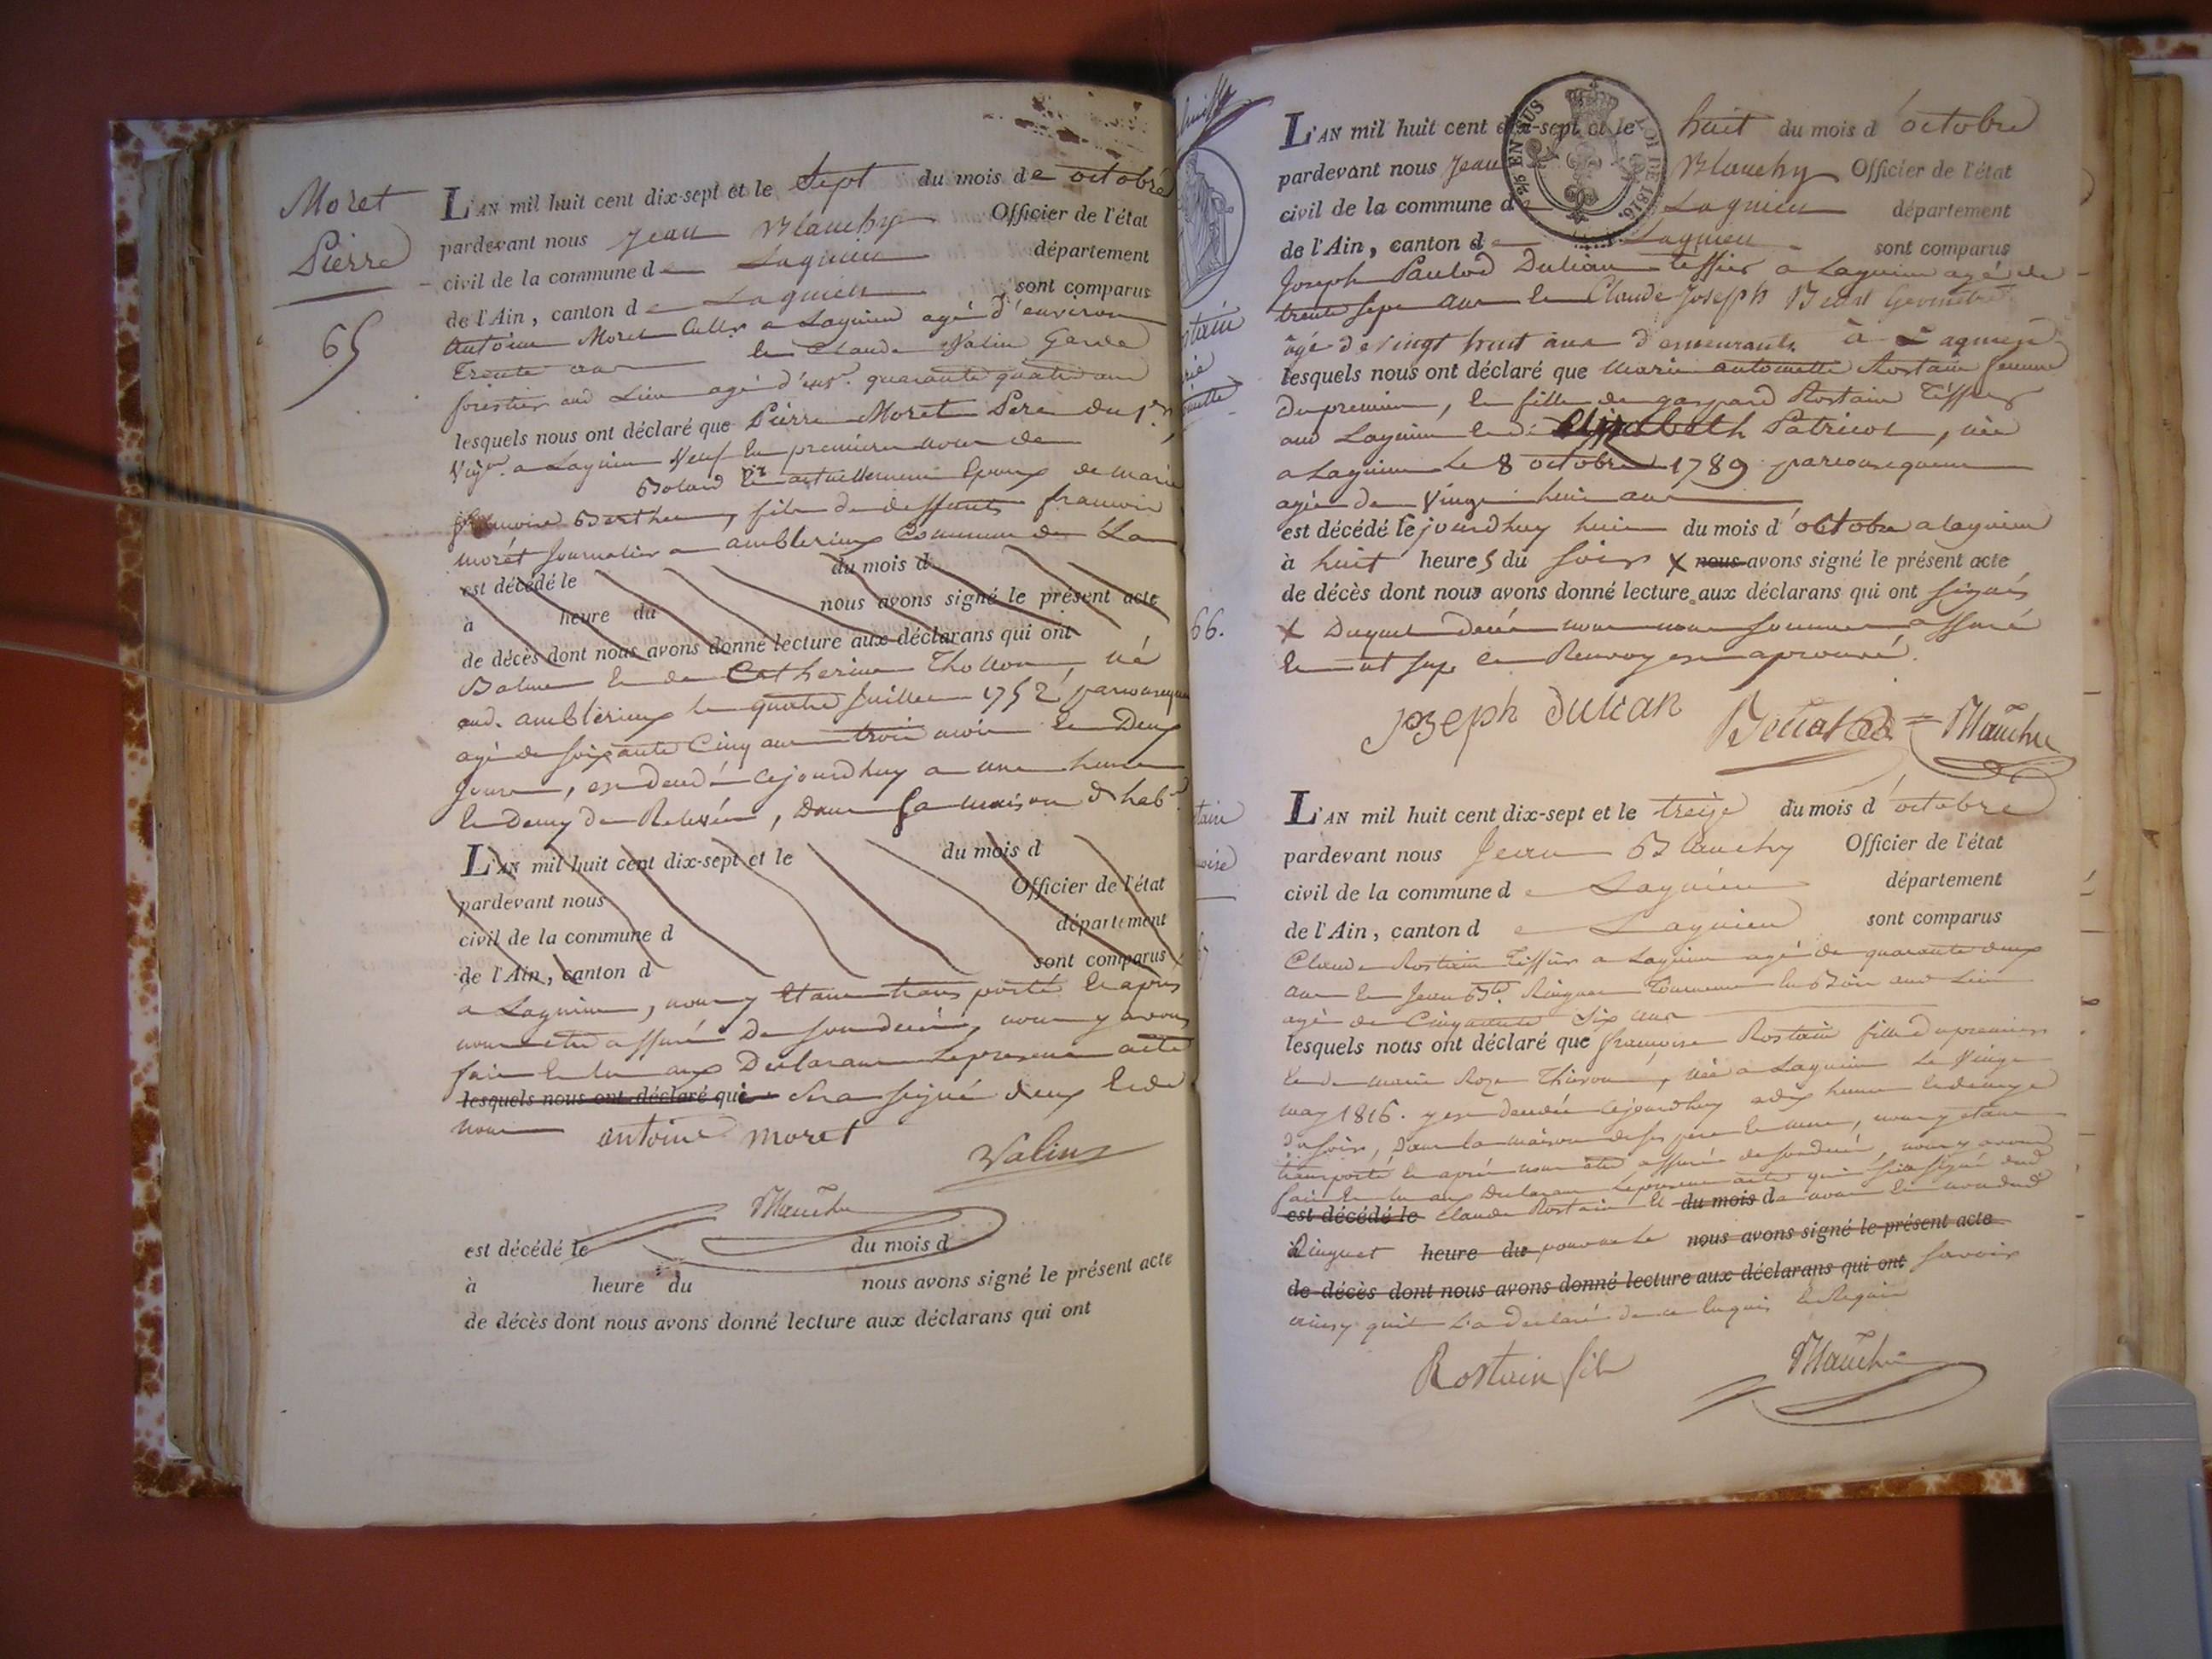 Moret
Pierre
65
L'AN mil huit cent dix-sept et le Sept du mois de octobre
pardevant nous Jean Blanchy Officier de l'état
civil de la commune de Lagnieu département
de l'Ain, canton de Lagnieu sont comparus
Antoine Moret a Lagnieu agé d'environ
Trente ans et Claude Valin Garde
forestier aud Lieu agé d'env. quarante quatre ans
lesquels nous ont déclaré que Pierre Moret Pere du 1er
a Lagnieu Veuf en premieres noces de
Boland et actuellement Epoux de marie
françoise Berthet, fils de deffunts francois
morét journalier a amblerieux Commune de La
est décédé le du mois d
à heure du nous avons signé le présent acte
de décès dont nous avons donné lecture aux déclarans qui ont
Balme et de Catherine Thollon, né
aud. amblérieux le quatre Juillet 1752, parconsequent
agé de soixante Cinq ans trois mois et Deux
jours, est decedé cejourdhuy a une heure
et Demy de Relevée, Dans sa maison d'hab.
L'AN mil huit cent dix-sept et le du mois d
pardevant nous Officier de l'état
civil de la commune d département
de l'Ain, canton d sont comparus
a Lagnieu, nous y étant transporté et apres
nous etre assuré De son decés, nous y avons
fait et lu aux Declarans Le present acte
lesquels nous ont déclaré que Sera signé d'eux et de
nous antoine moret
Valin
Blanchy
est décédé le du mois d
à heure du nous avons signé le présent acte
de décès dont nous avons donné lecture aux déclarans qui ont
66.
L'AN mil huit cent dix-sept et le huit du mois d'octobre
25 EN SUS LOI DE 1816.
pardevant nous Jean Blanchy Officier de l'état
civil de la commune de Lagnieu département
de l'Ain, canton de Lagnieu sont comparus
Joseph Dulian Tissier a Lagnieu agé de
trente sept ans et Claude Joseph
âgé de vingt huit ans demeurants à Lagnieu
lesquels nous ont déclaré que Marie antoinette Rostain femme
du premier, et fille de gaspard Rostain Tissier
aud Lagnieu et d'Elizabeth Patricot, née
a Lagnieu Le 8 octobre 1789 parconsequent
agée de Vingt huit ans
est décédé le jourdhuy huit du mois d'octobre a lagnieu
à huit heures du soir x nous avons signé le présent acte
de décès dont nous avons donné lecture aux déclarans qui ont signés
x Duquel decés nous nous sommes assuré
Le Renvoy est aprouvé.
Joseph Dulian Blanchy
L'AN mil huit cent dix-sept et le treize du mois d'octobre
pardevant nous Jean Blanchy Officier de l'état
civil de la commune de Lagnieu département
de l'Ain, canton de Lagnieu sont comparus
Claude Rostain Tissier a Lagnieu agé de quarante deux
ans et Jean Bte. Ringuet Tourneur en Bois aud Lieu
agé de Cinquante Six ans
lesquels nous ont déclaré que françoise Rostain fille du premier
et de marie Roze, née a Lagnieu Le Vingt
may 1816. y est decedée cejourdhuy a dix heures et demye
du soir, Dans la maison de ses pere et mere, nous y etant
transporté et aprés nous etre assuré de son decés, nous y avons
fait et lu aux Declarans Le present acte qui sera signé dud
est décédé le Claude Rostain et du mois de nous et non dud
Ringuet heure du pour ne le nous avons signé le présent acte
de décès dont nous avons donné lecture aux déclarans qui ont savoir
ainsy qu'il L'a declaré de ce enquis et Requis
Rostain fils Blanchy